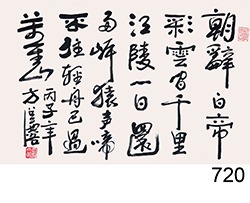 朝辭白帝
彩雲間千里
江陵一日還
兩岸猿聲啼
不住輕舟已過
萬重山 丙子年
720